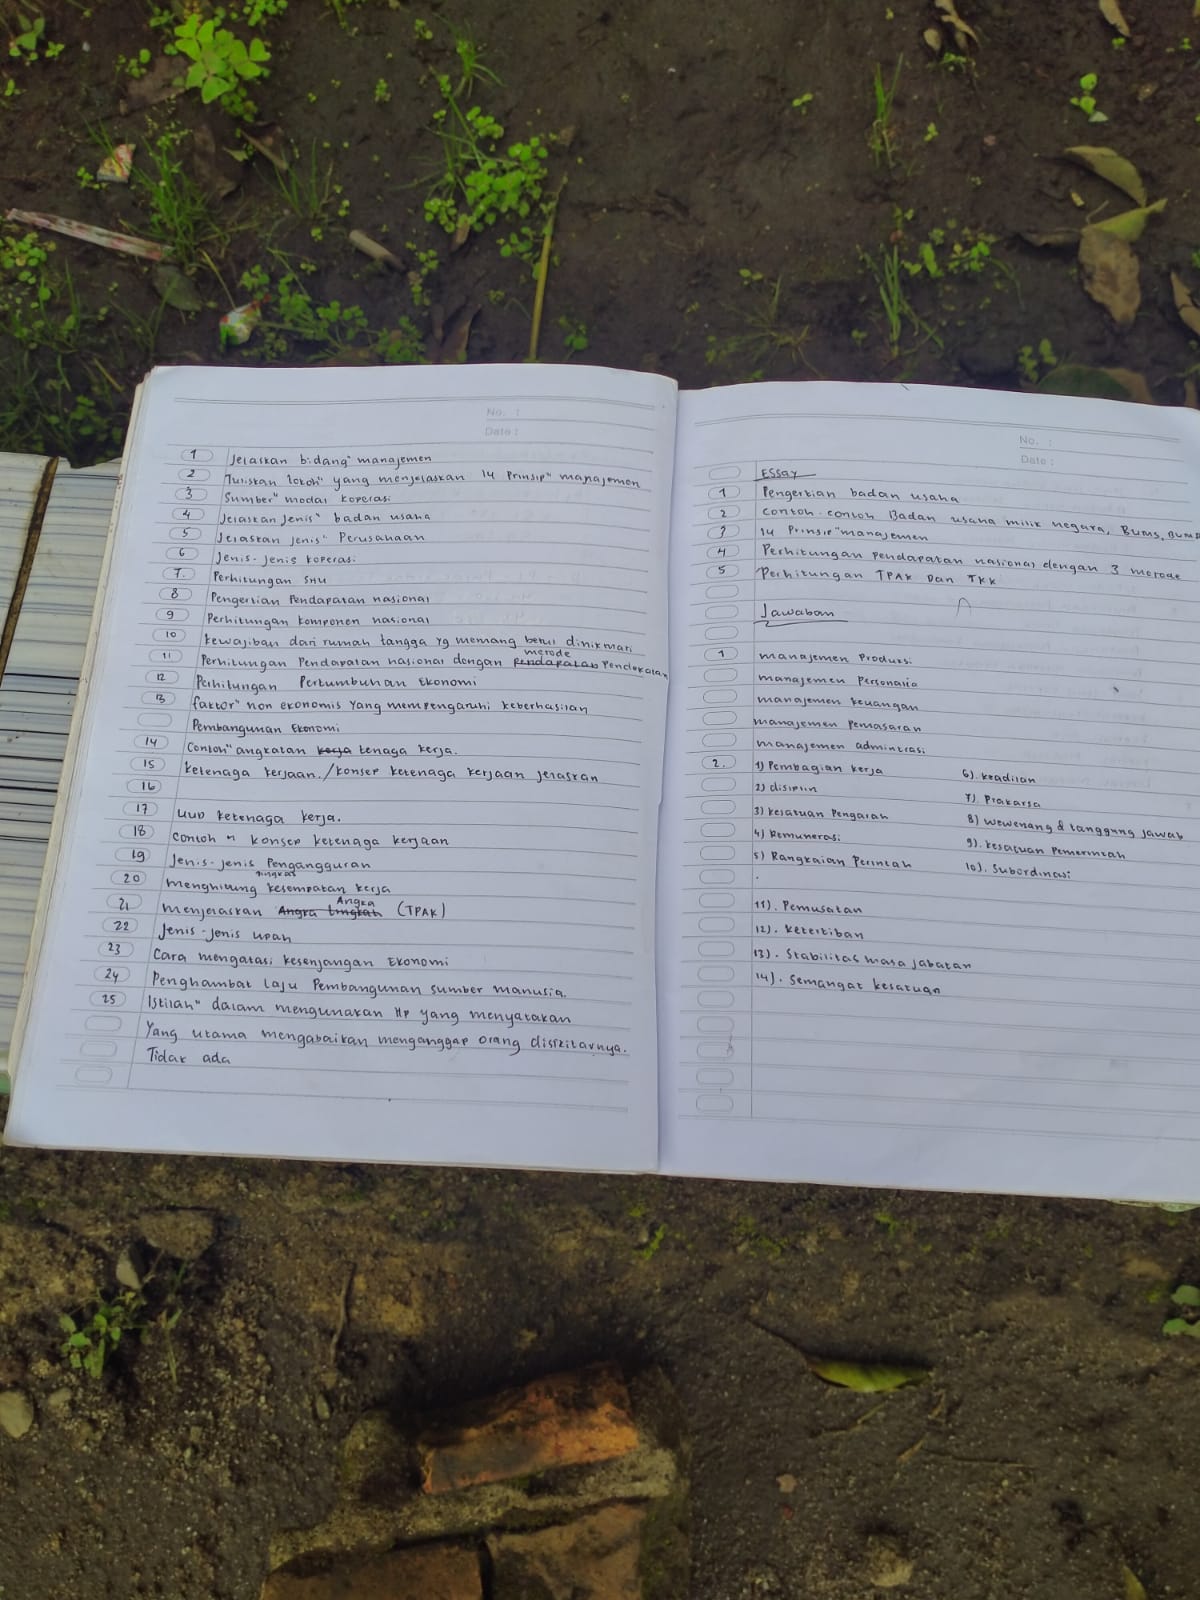 No. :
Date :
1 Jelaskan bidang" manajemen
2 Tuliskan tokoh" yang menjelaskan 14 Prinsip" manajemen
3 Sumber" modal koperasi
4 Jelaskan Jenis" badan usaha
5 Jelaskan Jenis" Perusahaan
6 Jenis-Jenis koperasi
7. Perhitungan SHU
8 Pengertian Pendapatan nasional
9 Perhitungan komponen nasional
10 kewajiban dari rumah tangga yg memang betul dinikmati
metode
11 Perhitungan Pendapatan nasional dengan pendapatan Pendekatan
12 Perhitungan Pertumbuhan Ekonomi
13 faktor" non ekonomis yang mempengaruhi keberhasilan
Pembangunan Ekonomi
14 Contoh" angkatan kerja tenaga kerja.
15 ketenaga kerjaan./konsep ketenaga kerjaan jelaskan
16
17 UUD ketenaga kerja.
18 Contoh " konsep ketenaga kerjaan
19 Jenis-jenis Pengangguran
tingkat
20 menghitung kesempatan kerja
Angka
21 menjelaskan Angka tingkat (TPAK)
22 Jenis-Jenis upah
23 Cara mengatasi kesenjangan Ekonomi
24 Penghambat laju Pembangunan sumber manusia.
25 Istilah" dalam mengunakan Hp yang menyatakan
Yang utama mengabaikan menganggap orang disekitarnya.
Tidak ada
No. :
Date :
Essay
1 Pengertian badan usaha
2 contoh-contoh Badan usaha milik negara, BUMS, BUMD
3 14 Prinsip" manajemen
4 Perhitungan pendapatan nasional dengan 3 metode
5 Perhitungan TPAK Dan TKK
Jawaban
1 manajemen Produksi
manajemen Personalia
manajemen keuangan
manajemen Pemasaran
manajemen admintrasi
2. 1) Pembagian kerja 6). keadilan
2) disiplin 7). Prakarsa
3) kesatuan Pengarah 8) wewenang & tanggung jawab
4) Remunerasi 9). kesatuan Pemerintah
5) Rangkaian Perintah 10). Subordinasi
11). Pemusatan
12). ketertiban
13). Stabilitas masa jabatan
14). Semangat kesatuan